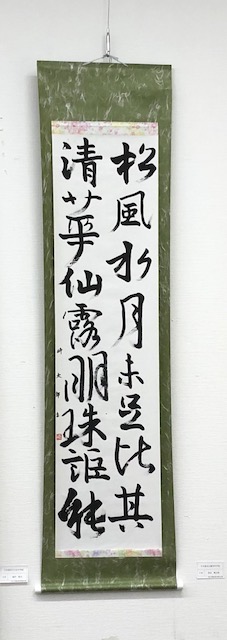 松風水月未足比其
清華仙露明珠詎能